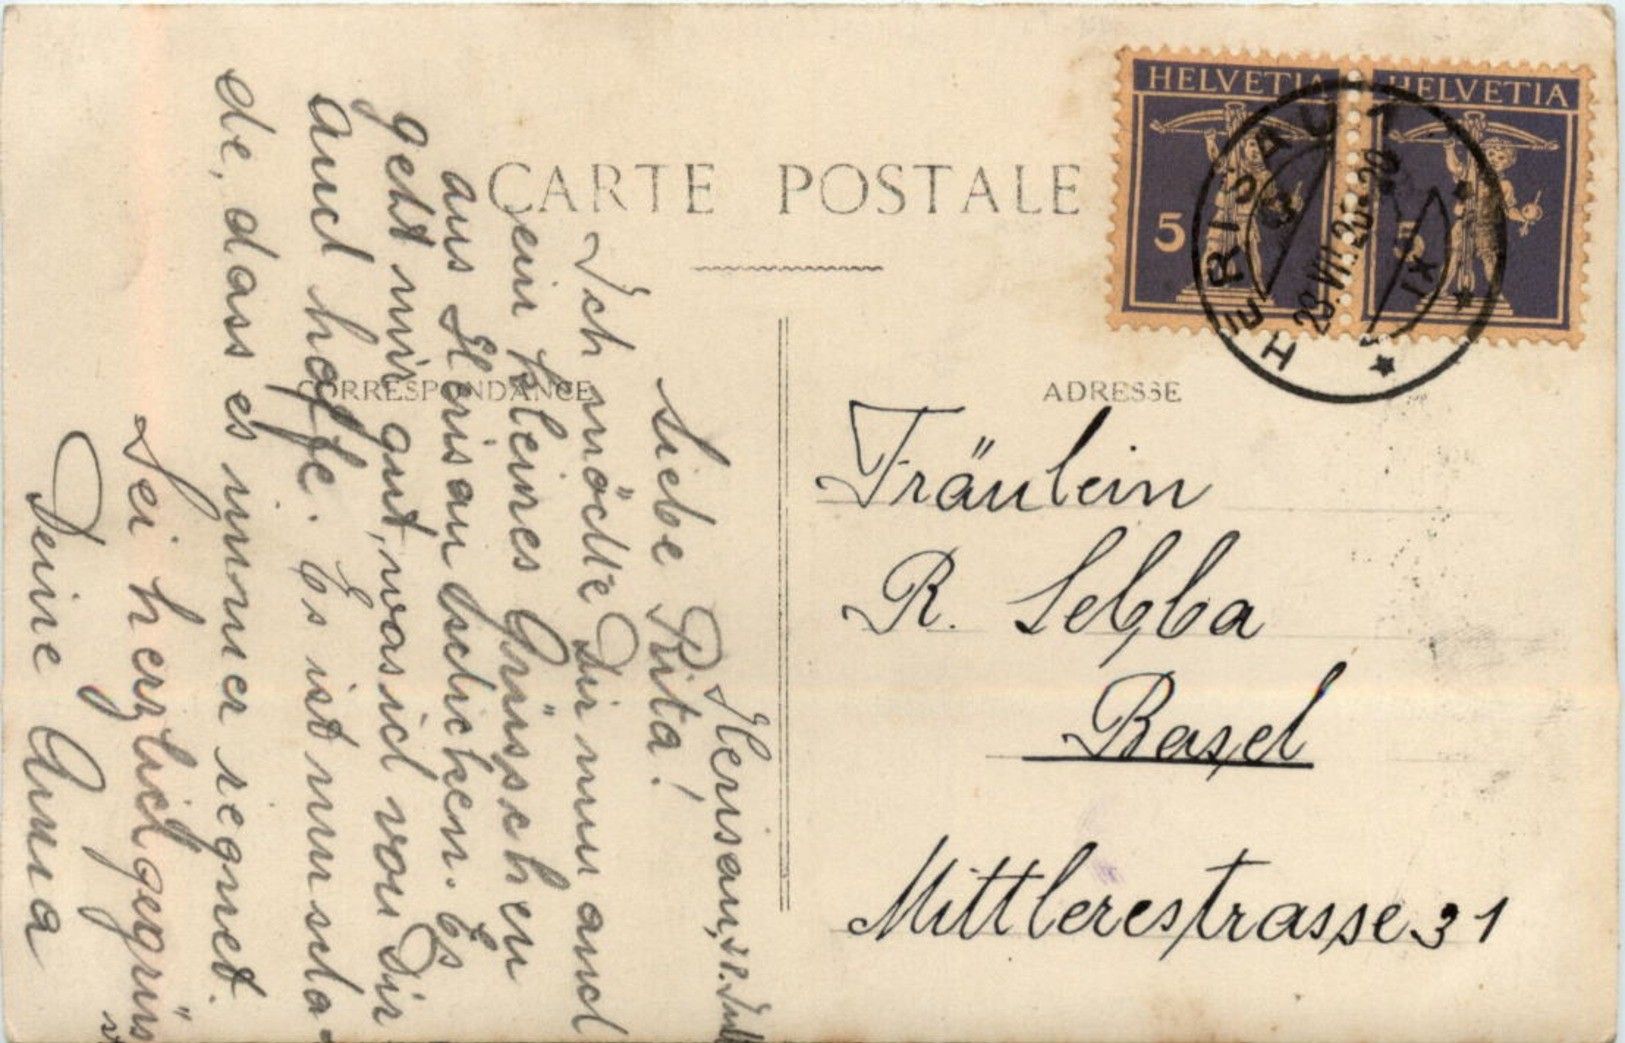 CARTE POSTALE
CORRESPONDANCE
ADRESSE
HELVETIA
5
HELVETIA
5
HERISAU 1
28.VII.25-20
IX
Herisau, 28. Juli
Liebe Rita!
Ich möchte Dir nun auch
ein kleines Grüsschen
aus Herisau schicken. Es
geht mir gut, was ich von Dir
auch hoffe. Es ist nur scha-
de, dass es immer regnet.
Sei herzlich gegrüs
Deine Anna
Fräulein
R. Sebba
Basel
Mittlerestrasse 31